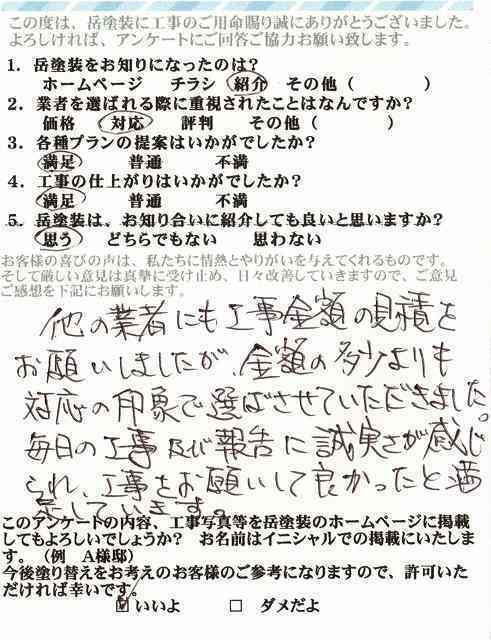 この度は、岳塗装に工事のご用命賜り誠にありがとうございました。
よろしければ、アンケートにご回答ご協力お願い致します。
1．岳塗装をお知りになったのは?
ホームページ　チラシ　紹介　その他（　　　　）
2．業者を選ばれる際に重視されたことはなんですか?
価格　対応　評判　その他（　　　　）
3．各種プランの提案はいかがでしたか?
満足　普通　不満
4．工事の仕上がりはいかがでしたか?
満足　普通　不満
5．岳塗装は、お知り合いに紹介しても良いと思いますか?
思う　どちらでもない　思わない
お客様の喜びの声は、私たちに情熱とやりがいを与えてくれるものです。
そして厳しい意見は真摯に受け止め、日々改善していきますので、ご意見
ご感想を下記にお願いします。
他の業者にも工事金額の見積を
お願いしましたが、金額の多少よりも
対応の印象で選ばさせていただきました。
毎日の工事及び報告に誠実さが感じ
られ、工事をお願いして良かったと満
足しています。
このアンケートの内容、工事写真等を岳塗装のホームページに掲載
してもよろしいでしょうか?　お名前はイニシャルでの掲載にいたしま
す。（例　A様邸）
今後塗り替えをお考えのお客様のご参考になりますので、許可いた
だければ幸いです。
☑ いいよ　□ ダメだよ